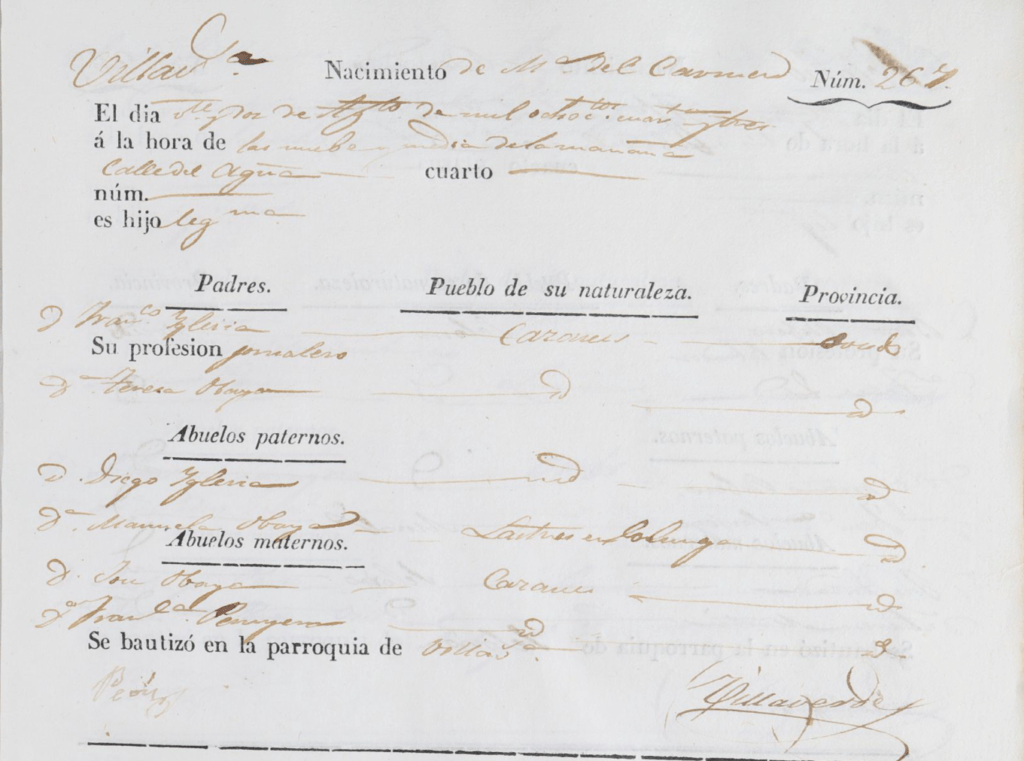 Villav.ª Nacimiento de M.ª del Carmen Núm. 267.
El dia v.te y dos de Agto de mil ochoc.tos cuar.ta y tres
á la hora de las nuebe y media de la mañana
Calle del Agua cuarto
núm.
es hijo leg.ma
Padres. Pueblo de su naturaleza. Provincia.
D. Fran.co Yglesia Carances
Su profesion jornalero
D.ª Teresa Obaya id id
Abuelos paternos.
D. Diego Yglesia id id
D.ª Manuela Obaya Lastres en Colunga id
Abuelos maternos.
D. José Obaya Carances id
D.ª Fran.ca
Se bautizó en la parroquia de Villav.ª id.
Villaverde